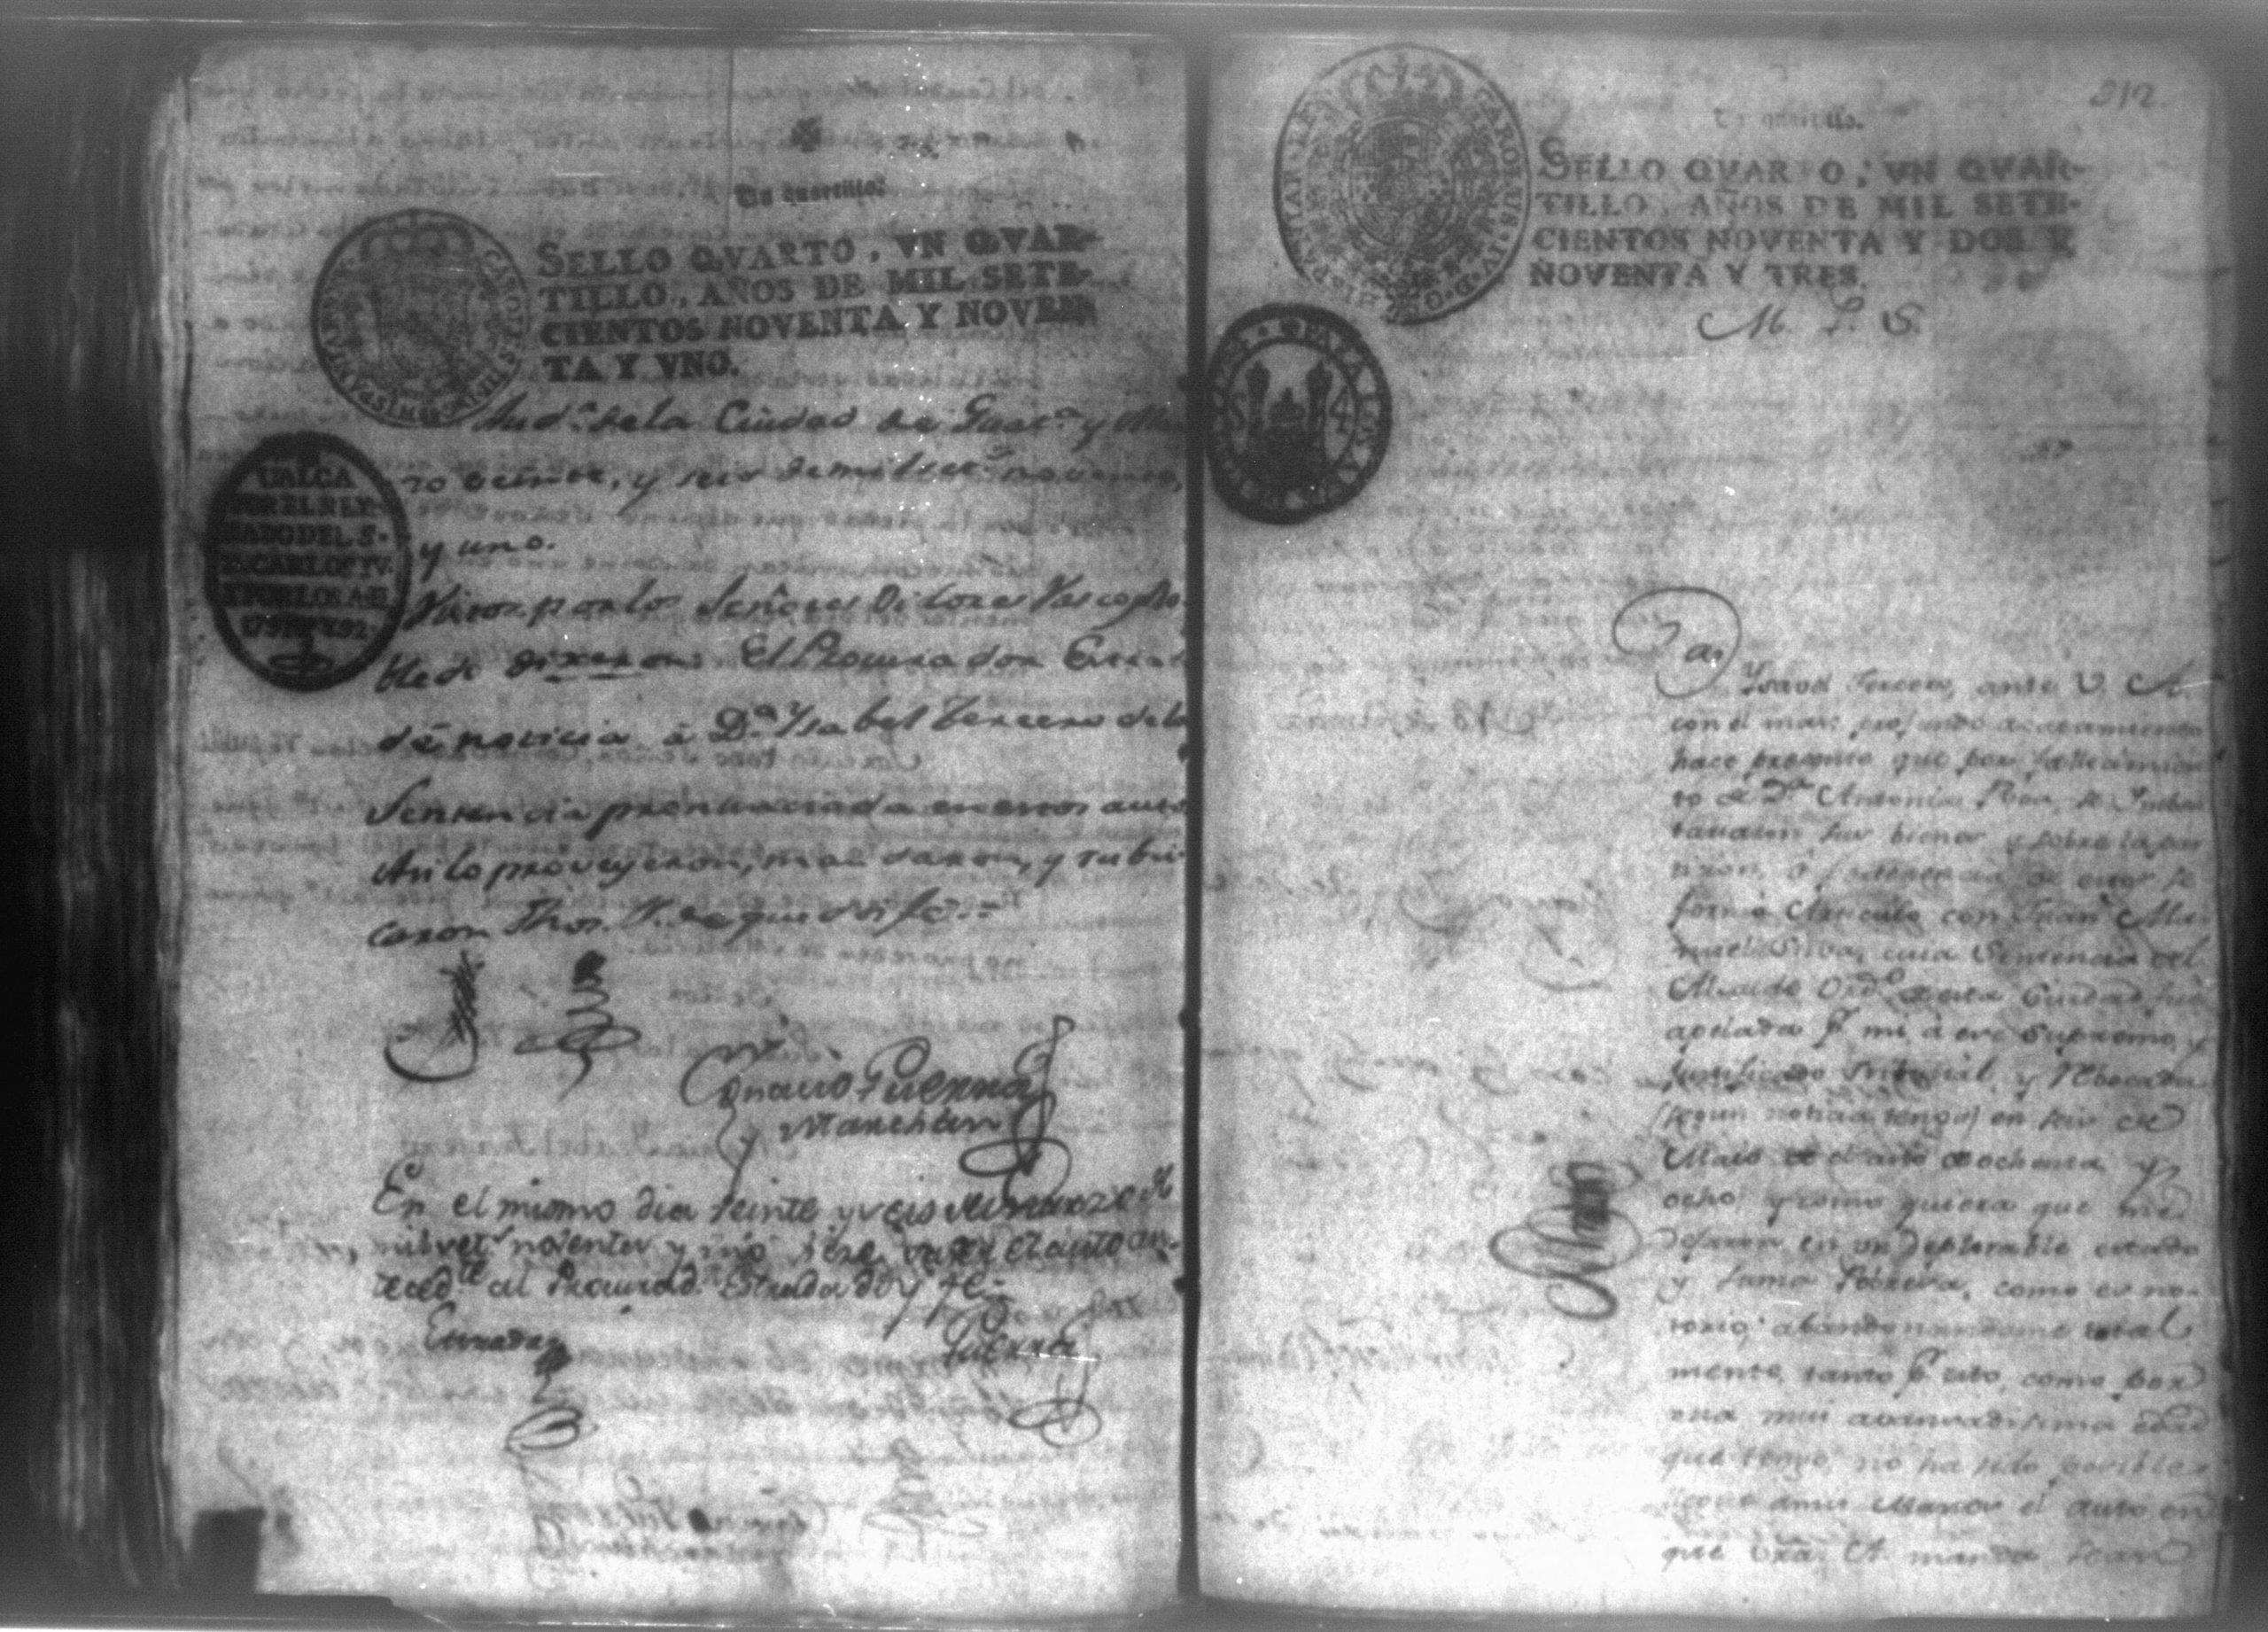 Un quartillo.
SELLO QVARTO, VN QVAR-
TILLO, AÑOS DE MIL SETE-
CIENTOS NOVENTA Y NOVEN
TA Y VNO.
CAROLUS
VALCA
POR EL REY
NADO DEL S.
D. CARLOS IV.
Y POR LOS A. EL
Aud.ª de la Ciudad de Guat.ª y Mar
zo veinte, y seis de mil set.s noventa,
y uno.
por los Señores Oidores Vasco, Ro
bledo dixeron: El Procurador Estrad
dé noticia á D.ª Ysabel Tercero de la
Sentencia pronunciada en estos auto
Asi lo proveyeron, mandaron, y rubri
caron de que doi fé.=
Ignacio Guerra
y Marchan
En el mismo dia veinte y seis de marzo de
mil set.s noventa y uno hize saver el auto an-
teced.te al Procurad.r Estrada doy fe=
Estrada
Guerra
312
Un quartillo.
SELLO QVARTO, VN QVAR-
TILLO, AÑOS DE MIL SETE-
CIENTOS NOVENTA Y DOS Y
NOVENTA Y TRES.
CAROLUS IV D G HISPANIAR REX
S 4
M. P. S.
Ysavel Tercero, ante V. A
con el mas profundo acatamiento
hace presente que por fallecimien
to de D.ª Antonia Roa, se Imben
tariaron sus bienes y sobre la par
ticion, ó pertenencia de estos se
formó Articulo con Juan Ma-
nuel Silva, cuia Sentencia del
Alcalde Ord.º de esta Ciudad fue
apelada p.r mi á ese Supremo, y
Justificado Tribunal, y Rebocada
(segun noticia tengo) en seis de
Maio de el año de ochenta y
ocho y como quiera que me
dejaron en un deplorable estado
y suma Pobreza, como es no-
torio abandonandome total
mente, tanto p.r esto, como por
una mui abanzadisima edad
que tengo, no ha sido posible
llegue á mis Manos el auto en
que Vra. A. manda